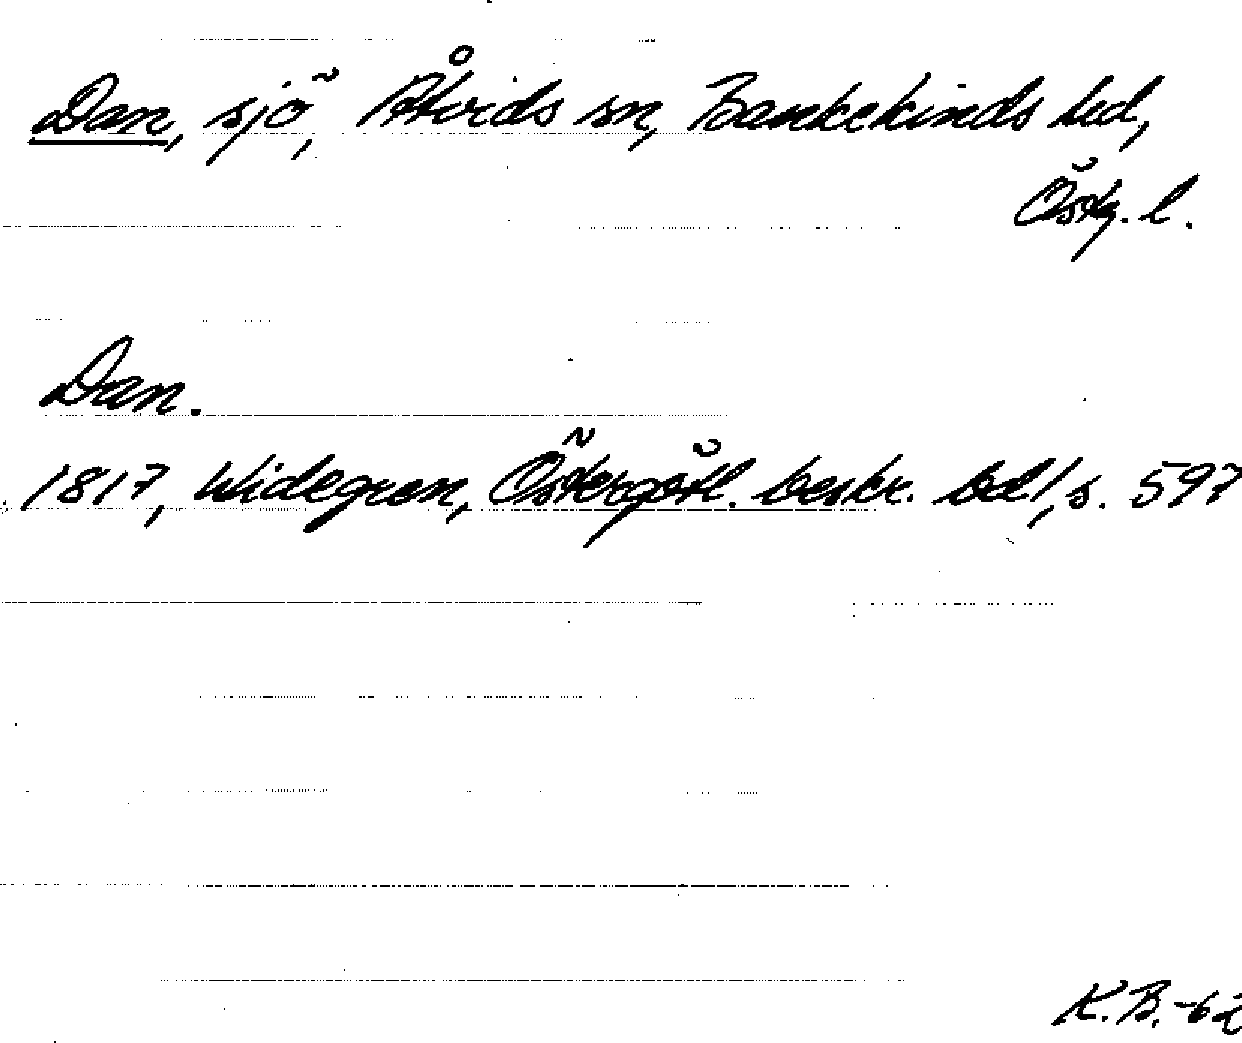 Dan, sjö, Åtvids sn, Bankekinds hd,
Östg. l.
Dan.
1817, Widegren, Östergötl. beskr. bd 1, s. 597
K.B. -62